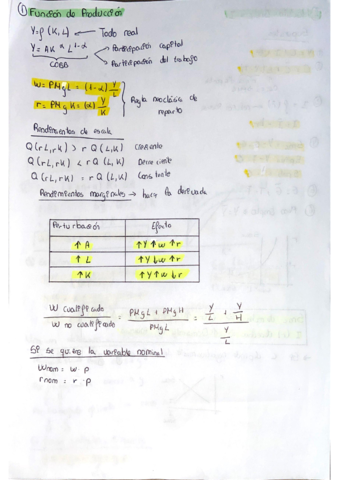 ① Función de Producción
Y = F (K, L) ← Todo real
Y = A K^α L^1-α → Participación capital
COBB → Participación del trabajo
w = PMgL = (1-α) Y/L
r = PMgK = (α) Y/K
Regla neoclásica de reparto
Rendimientos de escala
Q (rL, rK) > r Q (L, K) Creciente
Q (rL, rK) < r Q (L, K) Decreciente
Q (rL, rK) = r Q (L, K) Constante
Rendimientos marginales → hacer la derivada
Perturbación Efecto
↑ A ↑Y ↑w ↑r
↑ L ↑Y ↓w ↑r
↑ K ↑Y ↑w ↓r
W cualificado / W no cualificado = PMgL + PMgH / PMgL = Y/L + Y/H / Y/L
Si se quiere la variable nominal
Wnom = w · p
rnom = r · p